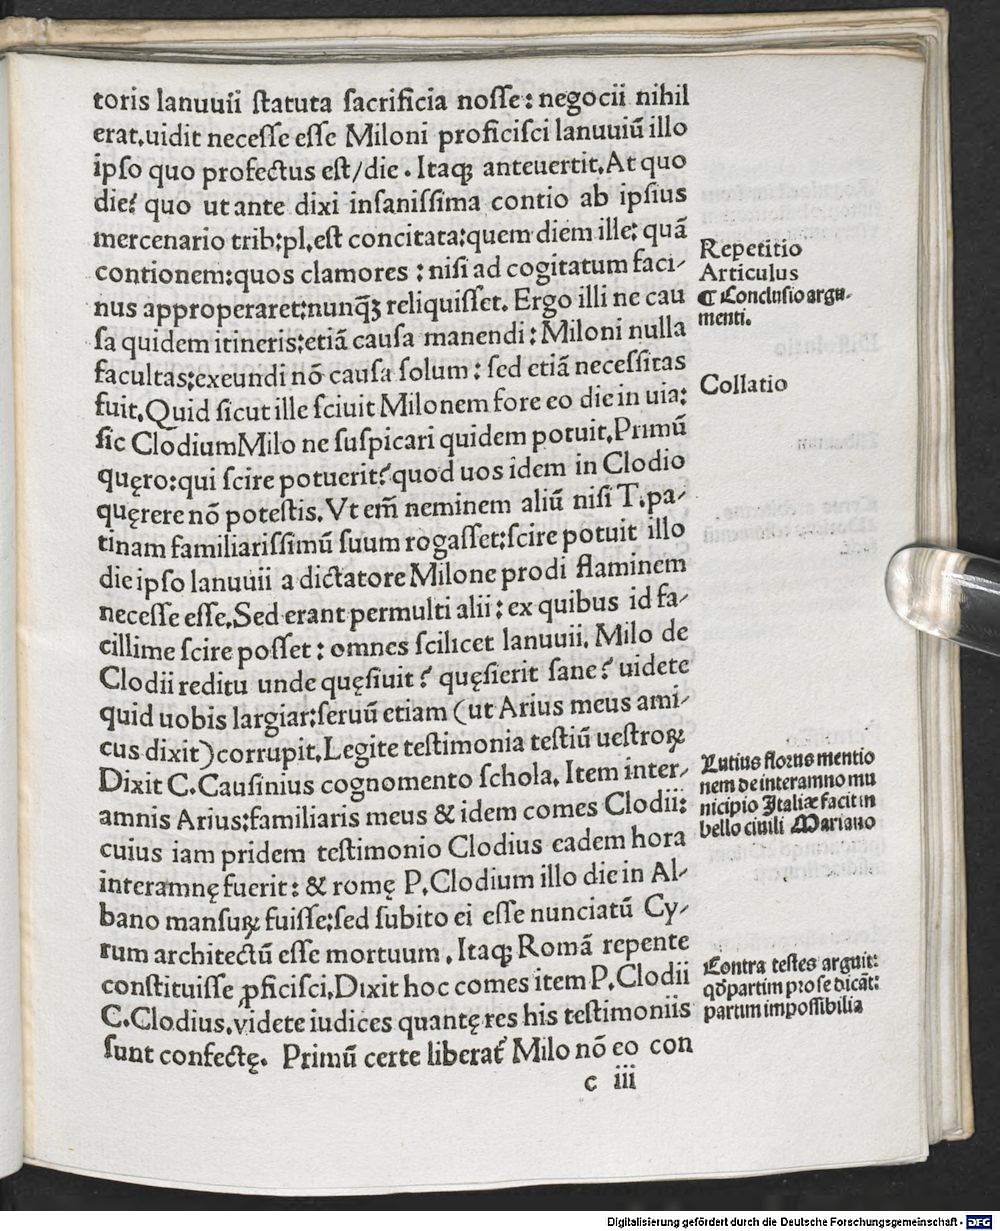 toris lanuuii statuta sacrificia nosse: negocii nihil
erat.uidit necesse esse Miloni proficisci lanuuiū illo
ipso quo profectus est/die. Itaqꝫ anteuertit.At quo
die? quo ut ante dixi insanissima contio ab ipsius
mercenario trib:pl.est concitata:quem diem ille: quā
contionem:quos clamores : nisi ad cogitatum faci-
nus approperaret:nunqꝫ reliquisset. Ergo illi ne cau
sa quidem itineris:etiā causa manendi: Miloni nulla
facultas:exeundi nō causa solum : sed etiā necessitas
fuit.Quid sicut ille sciuit Milonem fore eo die in uia:
sic ClodiumMilo ne suspicari quidem potuit.Primū
quęro:qui scire potuerit? quod uos idem in Clodio
quęrere nō potestis.Vt em̄ neminem aliū nisi T.pa-
tinam familiarissimū suum rogasset:scire potuit illo
die ipso lanuuii a dictatore Milone prodi flaminem
necesse esse.Sed erant permulti alii: ex quibus id fa-
cillime scire posset: omnes scilicet lanuuii. Milo de
Clodii reditu unde quęsiuit? quęsierit sane? uidete
quid uobis largiar:seruū etiam (ut Arius meus ami-
cus dixit) corrupit.Legite testimonia testiū uestroꝝ
Dixit C.Causinius cognomento schola. Item inter-
amnis Arius:familiaris meus & idem comes Clodii:
cuius iam pridem testimonio Clodius eadem hora
interamnę fuerit: & romę P.Clodium illo die in Al-
bano mansuꝝ fuisse:sed subito ei esse nunciatū Cy-
rum architectū esse mortuum. Itaqꝫ Romā repente
constituisse ꝓficisci.Dixit hoc comes item P.Clodii
C.Clodius.videte iudices quantę res his testimoniis
sunt confectę. Primū certe liberat᷑ Milo nō eo con
c iii
Repetitio
Articulus
¶ Conclusio argu-
menti.
Collatio
Lutius florus mentio
nem de interamno mu
nicipio Italiæ facit in
bello ciuili Mariano
Contra testes arguit:
qd̄ partim pro se dicāt:
partim impossibilia
Digitalisierung gefördert durch die Deutsche Forschungsgemeinschaft - DFG